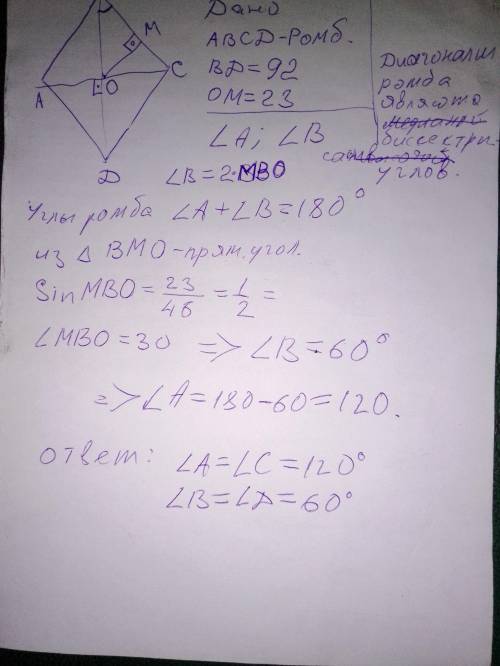 Дано
ABCD-Ромб.
BD=92
OM=23
∠A; ∠B
∠B=2·MBO
Диагонали
ромба
являютс
медианай
биссектри-
сами
углов.
M
A
O
C
D
Углы ромба ∠A+∠B=180°
из △ BMO-прям.угол.
Sin MBO = 23/46 = 1/2 =
∠MBO=30 => ∠B=60°
=> ∠A=180-60=120.
ответ: ∠A=∠C=120°
∠B=∠D=60°